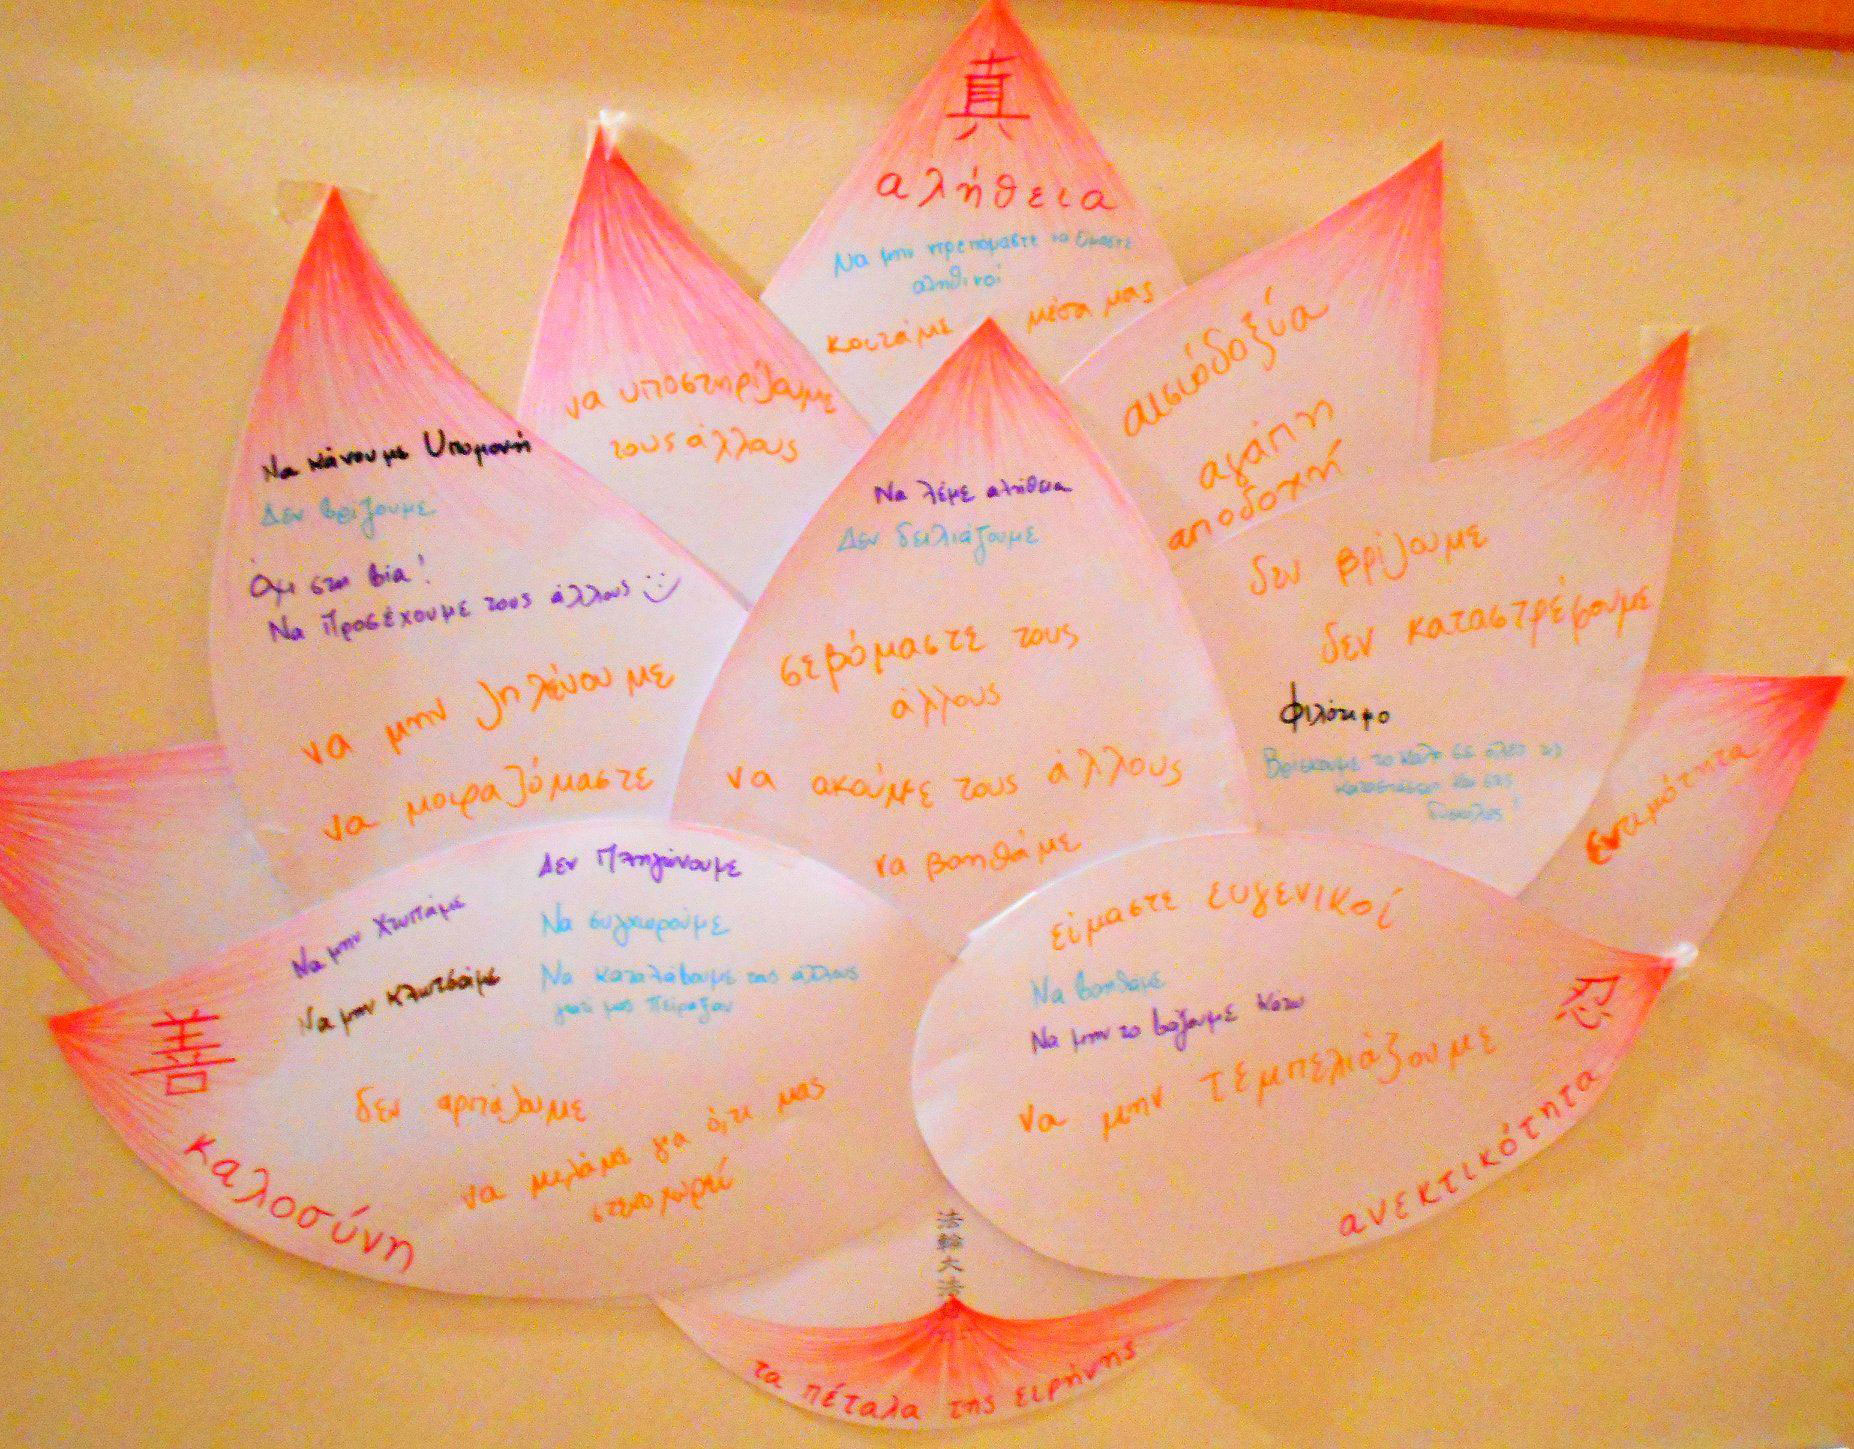 真
αλήθεια
Να μην ντρεπόμαστε να είμαστε
αληθινοί
κοιτάμε μέσα μας
να υποστηρίζουμε
τους άλλους
αισιόδοξία
αγάπη
αποδοχή
Να κάνουμε Υπομονή
Δεν βρίζουμε
Όχι στη βία!
Να Προσέχουμε τους άλλους
να μην ζηλέυουμε
να μοιραζόμαστε
Να λέμε αλήθεια
Δεν δειλιάζουμε
σεβόμαστε τους
άλλους
να ακούμε τους άλλους
να βοηθάμε
δεν βρίζουμε
δεν καταστρέφουμε
Φιλότιμο
Βρίσκουμε το καλό σε όλες τις
καταστάσεις και στις
δύσκολες!
Δεν Πληγώνουμε
Να μην Χτυπάμε
Να συγχωρούμε
Να μην κλωτσάμε
Να καταλάβουμε τους άλλους
γιατί μας πείραξαν
善
δεν αρπάζουμε
να μιλάμε για ό,τι μας
στεναχωρεί
καλοσύνη
είμαστε ευγενικοί
Να βοηθάμε
Να μην το βάζουμε κάτω
να μην τεμπελιάζουμε
忍
ανεκτικότητα
法輪大法
τα πέταλα της ειρήνης